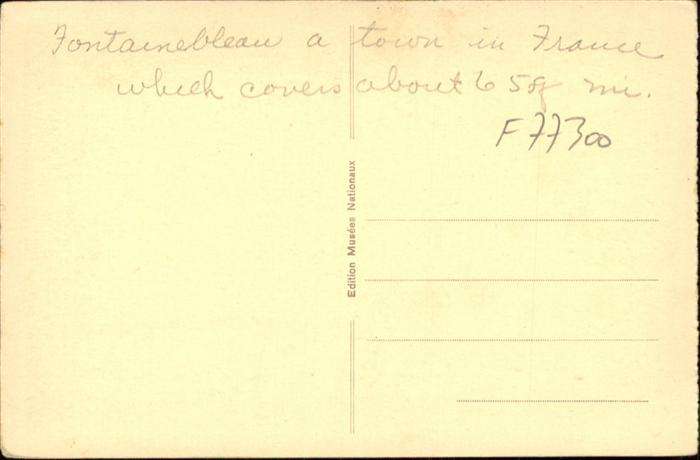 Fontainebleau a town in France
which covers about 65 sq mi.
F77300
Edition Musées Nationaux